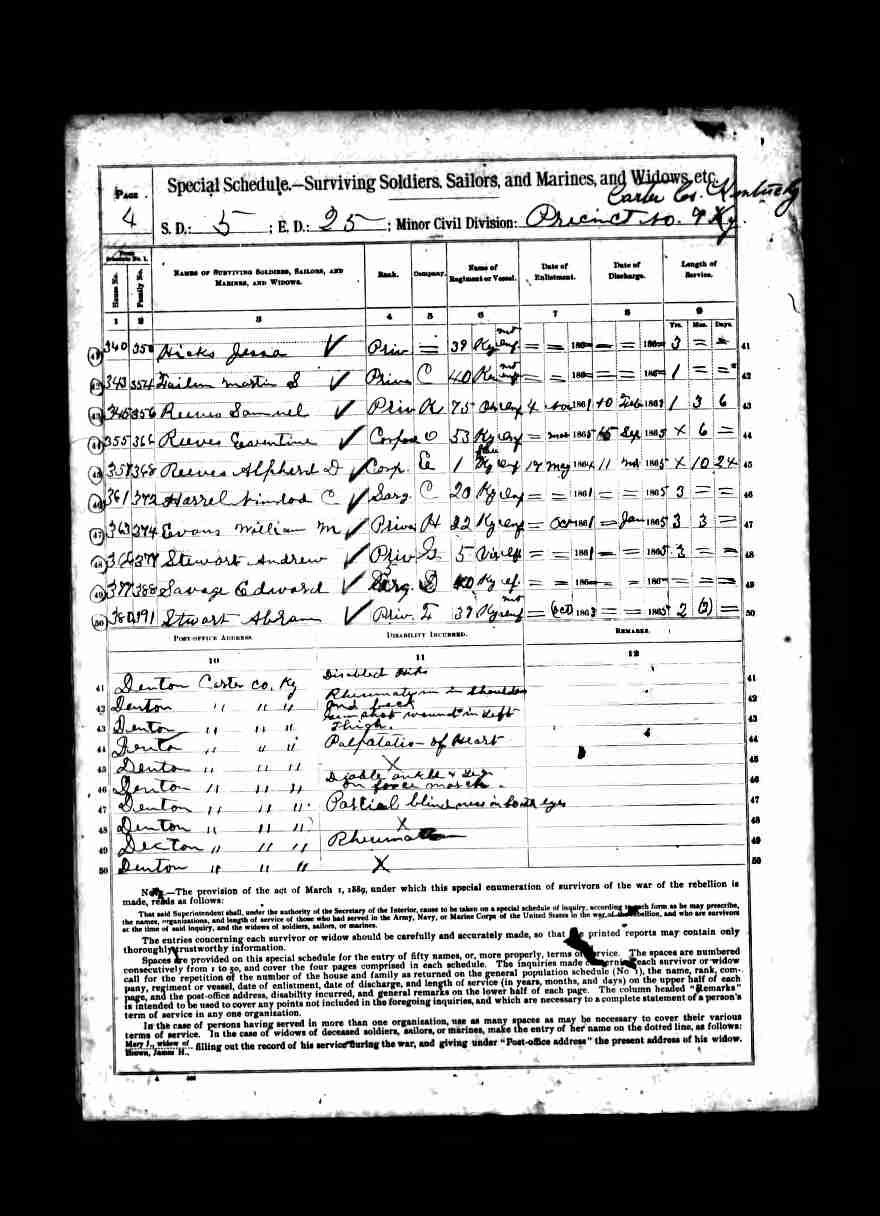 Page 4
Special Schedule.—Surviving Soldiers, Sailors, and Marines, and Widows, etc.
Carter Co. Kentucky
S. D.: 5 ; E. D.: 25 ; Minor Civil Division: Precinct No. 9 Ky.
From Schedule No. 1.
House No. Family No. Names of Surviving Soldiers, Sailors, and Marines, and Widows. Rank. Company. Name of Regiment or Vessel. Date of Enlistment. Date of Discharge. Length of Service.
1 2 3 4 5 6 7 8 9
Yrs. Mos. Days.
41 340 350 Hicks Jessa Priv = 39 Ky = = 186 = = 186 3 = = 41
42 343 354 Martin S Priva C 40 Ky = = 186 = = 186 1 = = 42
43 345 356 Reeves Samuel Priv K 75 4 Nov 1861 10 Feb 1863 1 3 6 43
44 355 366 Reeves 53 Ky = 1865 15 Sep 1865 x 6 = 44
45 357 368 Reeves Alpherd D Corp. E 1 Ky 17 May 1864 11 1865 x 10 24 45
46 361 372 Harrel Nimrod C Sarg. C 20 Ky = = 1861 = = 1865 3 = = 46
47 363 374 Evans William M Priva H 22 Ky = Oct 1861 = Jan 1865 3 3 = 47
48 377 Stewart Andrew Priv G 5 = = 1861 = = 1865 3 = = 48
49 377 388 Savage Edward Sarg. D 40 Ky = = 186 = = 186 = = = 49
50 380 391 Stwart Abram Priv. 39 Ky = Oct 1863 = = 1865 2 (2) = 50
Post-Office Address. Disability Incurred. Remarks.
10 11 12
41 Denton Carter co. Ky Disabled 41
42 Denton " " " Rheumatism in Shoulder and back 42
43 Denton " " " Gun shot wound in Left Thigh. 43
44 " " " Palpatation of Heart 44
45 Denton " " " X 45
46 Denton " " " ankle & Leg on force march. 46
47 Denton " " " Partial blindness in both eyes 47
48 Denton " " " X 48
49 " " " 49
50 Denton " " " X 50
Note.—The provision of the act of March 1, 1889, under which this special enumeration of survivors of the war of the rebellion is
made, reads as follows:
That said Superintendent shall, under the authority of the Secretary of the Interior, cause to be taken on a special schedule of inquiry, according to such form as he may prescribe,
the names, organisations, and length of service of those who had served in the Army, Navy, or Marine Corps of the United States in the war of the rebellion, and who are survivors
at the time of said inquiry, and the widows of soldiers, sailors, or marines.
The entries concerning each survivor or widow should be carefully and accurately made, so that the printed reports may contain only
thoroughly trustworthy information.
Spaces are provided on this special schedule for the entry of fifty names, or, more properly, terms of service. The spaces are numbered
consecutively from 1 to 50, and cover the four pages comprised in each schedule. The inquiries made concerning each survivor or widow
call for the repetition of the number of the house and family as returned on the general population schedule (No 1), the name, rank, com-
pany, regiment or vessel, date of enlistment, date of discharge, and length of service (in years, months, and days) on the upper half of each
page, and the post-office address, disability incurred, and general remarks on the lower half of each page. The column headed "Remarks"
is intended to be used to cover any points not included in the foregoing inquiries, and which are necessary to a complete statement of a person's
term of service in any one organisation.
In the case of persons having served in more than one organisation, use as many spaces as may be necessary to cover their various
terms of service. In the case of widows of deceased soldiers, sailors, or marines, make the entry of her name on the dotted line, as follows:
Mary J., widow of
Brown, James H., filling out the record of his service during the war, and giving under "Post-office address" the present address of his widow.